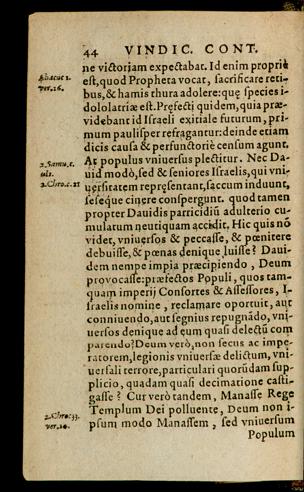 44 VINDIC. CONT.
ne victoriam expectabat. Id enim propriè
Abacuc 1.
ver. 16.
est, quod Propheta vocat, sacrificare reti-
bus, & hamis thura adolere: quę species i-
dololatriæ est. Pręfecti quidem, quia præ-
videbant id Israeli exitiale futurum, pri-
mum paulisper refragantur: deinde etiam
dicis causa & perfunctoriè censum agunt.
2. Samu. c.
ult.
2. Chro. c. 21
At populus vniuersus plectitur. Nec Da-
uid modò, sed & seniores Israelis, qui vni-
uersitatem repręsentant, saccum induunt,
seseque cinere conspergunt. quod tamen
propter Dauidis parricidiū adulterio cu-
mulatum neutiquam accidit. Hic quis nō
videt, vniuersos & peccasse, & pœnitere
debuisse, & pœnas denique luisse? Daui-
dem nempe impia præcipiendo, Deum
prouocasse: præfectos Populi, quos tam-
quam imperij Consortes & Assessores, I-
sraelis nomine, reclamare oportuit, aut
conniuendo, aut segnius repugnādo, vni-
uersos denique ad eum quasi delectū com
parendo? Deum verò, non secus ac impe-
ratorem, legionis vniuersæ delictum, vni-
uersali terrore, particulari quorūdam sup-
plicio, quadam quasi decimatione casti-
gasse? Cur verò tandem, Manasse Rege
2. Chro. 33.
ver. 10.
Templum Dei polluente, Deum non i-
psum modo Manassem, sed vniuersum
Populum